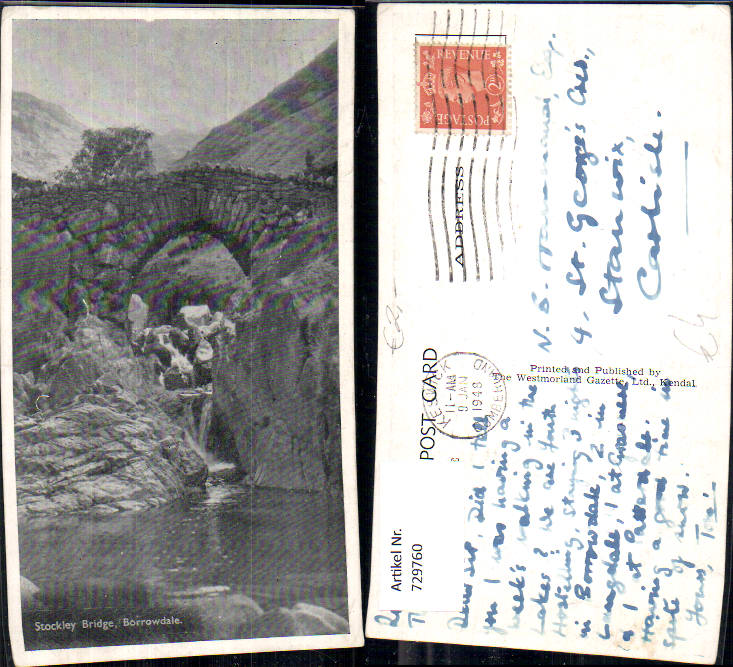 Stockley Bridge, Borrowdale.
REVENUE
2D
POSTAGE
ADDRESS
POST CARD
KESWICK
11-AM
9 JAN
1948
CUMBERLAND
Printed and Published by
The Westmorland Gazette, Ltd., Kendal.
N. S. Esq.
4, St. George's Cres.,
Stanwix,
Carlisle.
Did I tell
you I was having a
week's walking in the
Lakes? We are Youth
Hostelling, staying 3 nights
in Borrowdale, 2 in
Langdale, 1 at Grasmere,
1 at
Having a good time in
spite of snow.
Yours,
Artikel Nr.
729760